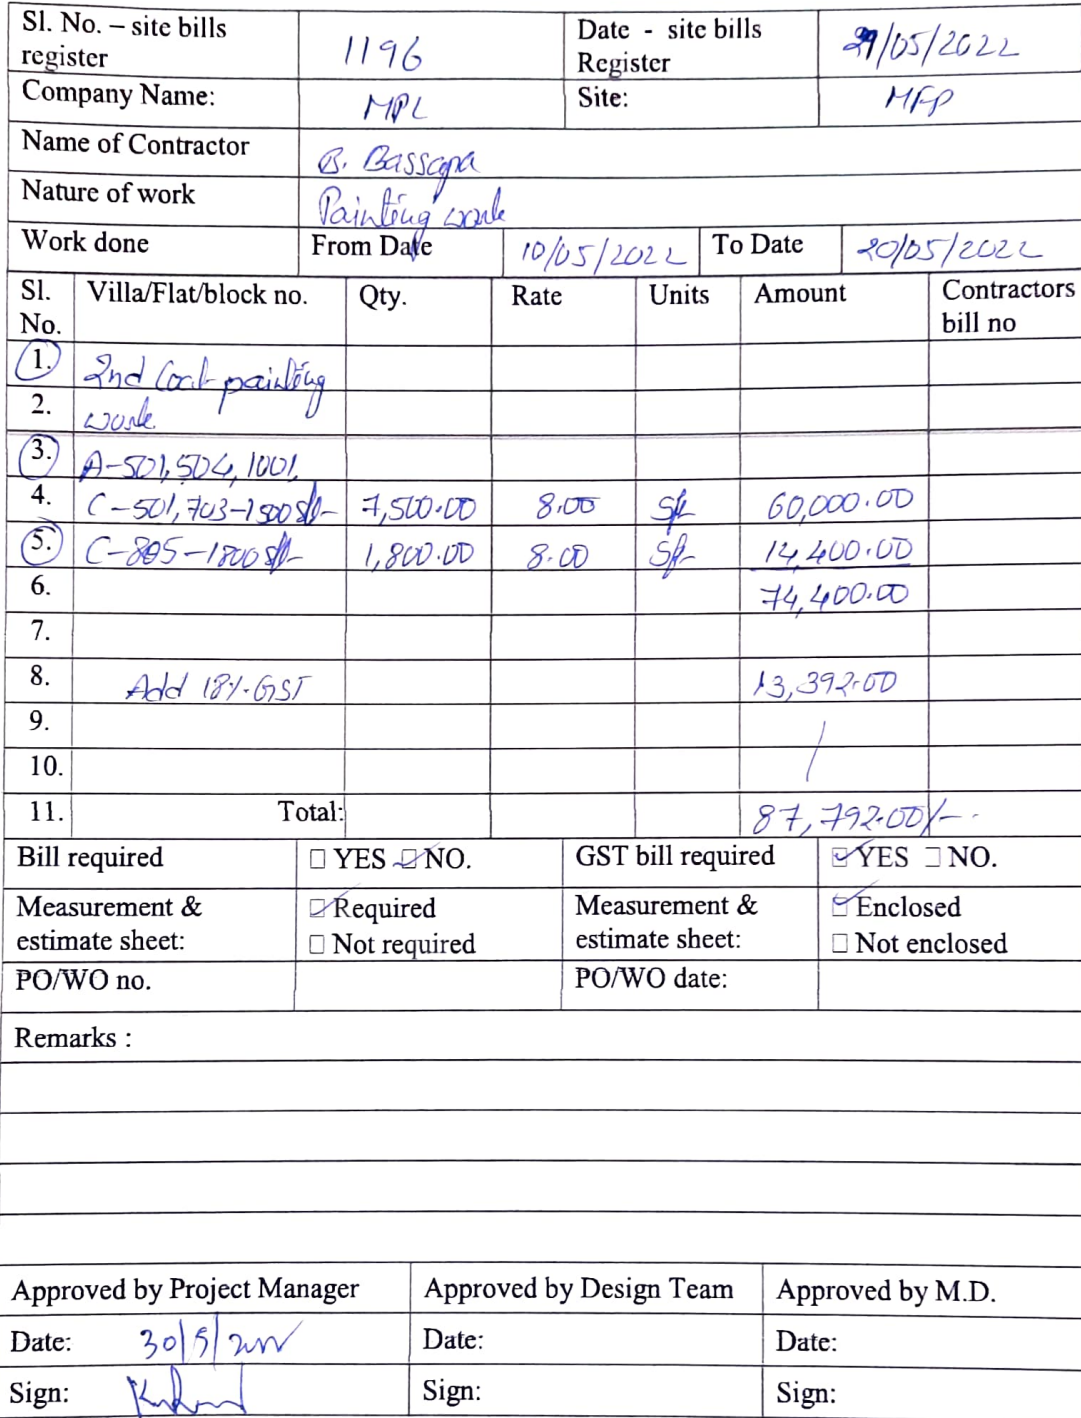 Sl. No. – site bills register 1196 Date - site bills Register 29/05/2022
Company Name: MPL Site: MFP
Name of Contractor B. Bassapa
Nature of work Painting work
Work done From Date 10/05/2022 To Date 20/05/2022
Sl. No. Villa/Flat/block no. Qty. Rate Units Amount Contractors bill no
1. 2nd Coat painting
2. work
3. A-501, 504, 1001,
4. C-501, 703-1500 sft 7,500.00 8.00 Sft 60,000.00
5. C-805-1800 sft 1,800.00 8.00 Sft 14,400.00
6. 74,400.00
7.
8. Add 18% GST 13,392.00
9.
10.
11. Total: 87,792.00/-
Bill required □ YES ☑ NO. GST bill required ☑ YES □ NO.
Measurement & estimate sheet: ☑ Required □ Not required Measurement & estimate sheet: ☑ Enclosed □ Not enclosed
PO/WO no. PO/WO date:
Remarks :
Approved by Project Manager Approved by Design Team Approved by M.D.
Date: 30/5/2022 Date: Date:
Sign: Sign: Sign: